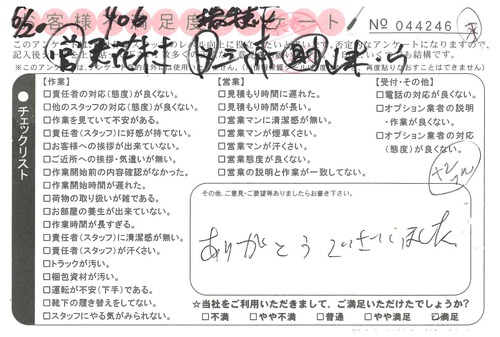 お客様満足度アンケート! No 044246
【作業】
□責任者の対応(態度)が良くない。
□他のスタッフの対応(態度)が良くない。
□作業を見ていて不安がある。
□責任者(スタッフ)に好感が持てない。
□お客様への挨拶が出来ていない。
□ご近所への挨拶・気遣いが無い。
□作業開始前の内容確認がなかった。
□作業開始時間が遅れた。
□荷物の取り扱いが雑である。
□お部屋の養生が出来ていない。
□作業時間が長すぎる。
□責任者(スタッフ)に清潔感が無い。
□責任者(スタッフ)が汗くさい。
□トラックが汚い。
□梱包資材が汚い。
□運転が不安(下手)である。
□靴下の履き替えをしてない。
□スタッフにやる気がみられない。
【営業】
□見積もり時間に遅れた。
□見積もり時間が長い。
□営業マンに清潔感が無い。
□営業マンが煙草くさい。
□営業マンが汗くさい。
□営業態度が良くない。
□営業の説明と作業が一致してない。
【受付・その他】
□電話の対応が良くない。
□オプション業者の説明
・作業が良くない。
□オプション業者の対応
(態度)が良くない。
チェックリスト
その他、ご意見・ご要望等ありましたらお書き下さい。
ありがとうございました
☆当社をご利用いただきまして、ご満足いただけたでしょうか?
□不満 □やや不満 □普通 □やや満足 ☑満足